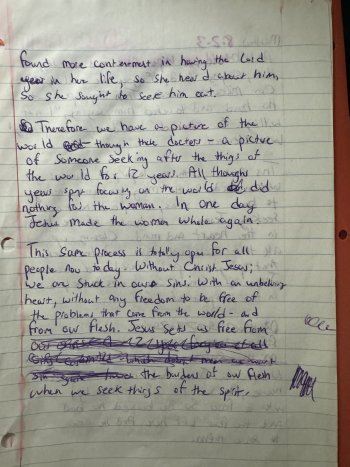 found more contentment in having the Lord
in her life, so she heard about him,
so she sought to seek him out.
Therefore we have a picture of the
world though these doctors - a picture
of someone seeking after the things of
the world for 12 years. All thoughs
years spent focusing on the world did
nothing for the woman. In one day
Jesus made the women whole again.
This same process is totally open for all
people now today. Without Christ Jesus;
we are stuck in our sins. With an unbelieving
heart, without any freedom to be free of
the problems that come from the world - and
from our flesh. Jesus sets us free from
the burdens of our flesh
when we seek things of the spirit.